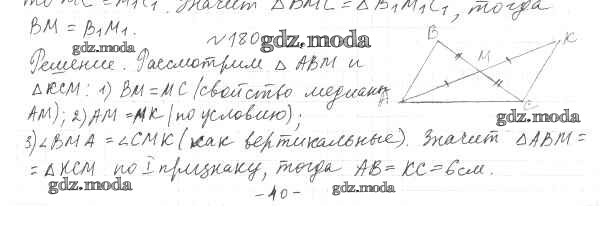 то MC = M₁C₁. Значит △BMC = △B₁M₁C₁, тогда
BM = B₁M₁.
gdz.moda
№180
gdz.moda
Решение. Рассмотрим △ ABM и
△KCM: 1) BM = MC (свойство медианы
AM); 2) AM = MK (по условию);
3) ∠BMA = ∠CMK (как вертикальные). Значит △ABM =
= △KCM по I признаку, тогда AB = KC = 6см.
B
K
M
A
C
gdz.moda
gdz.moda
-40-
gdz.moda